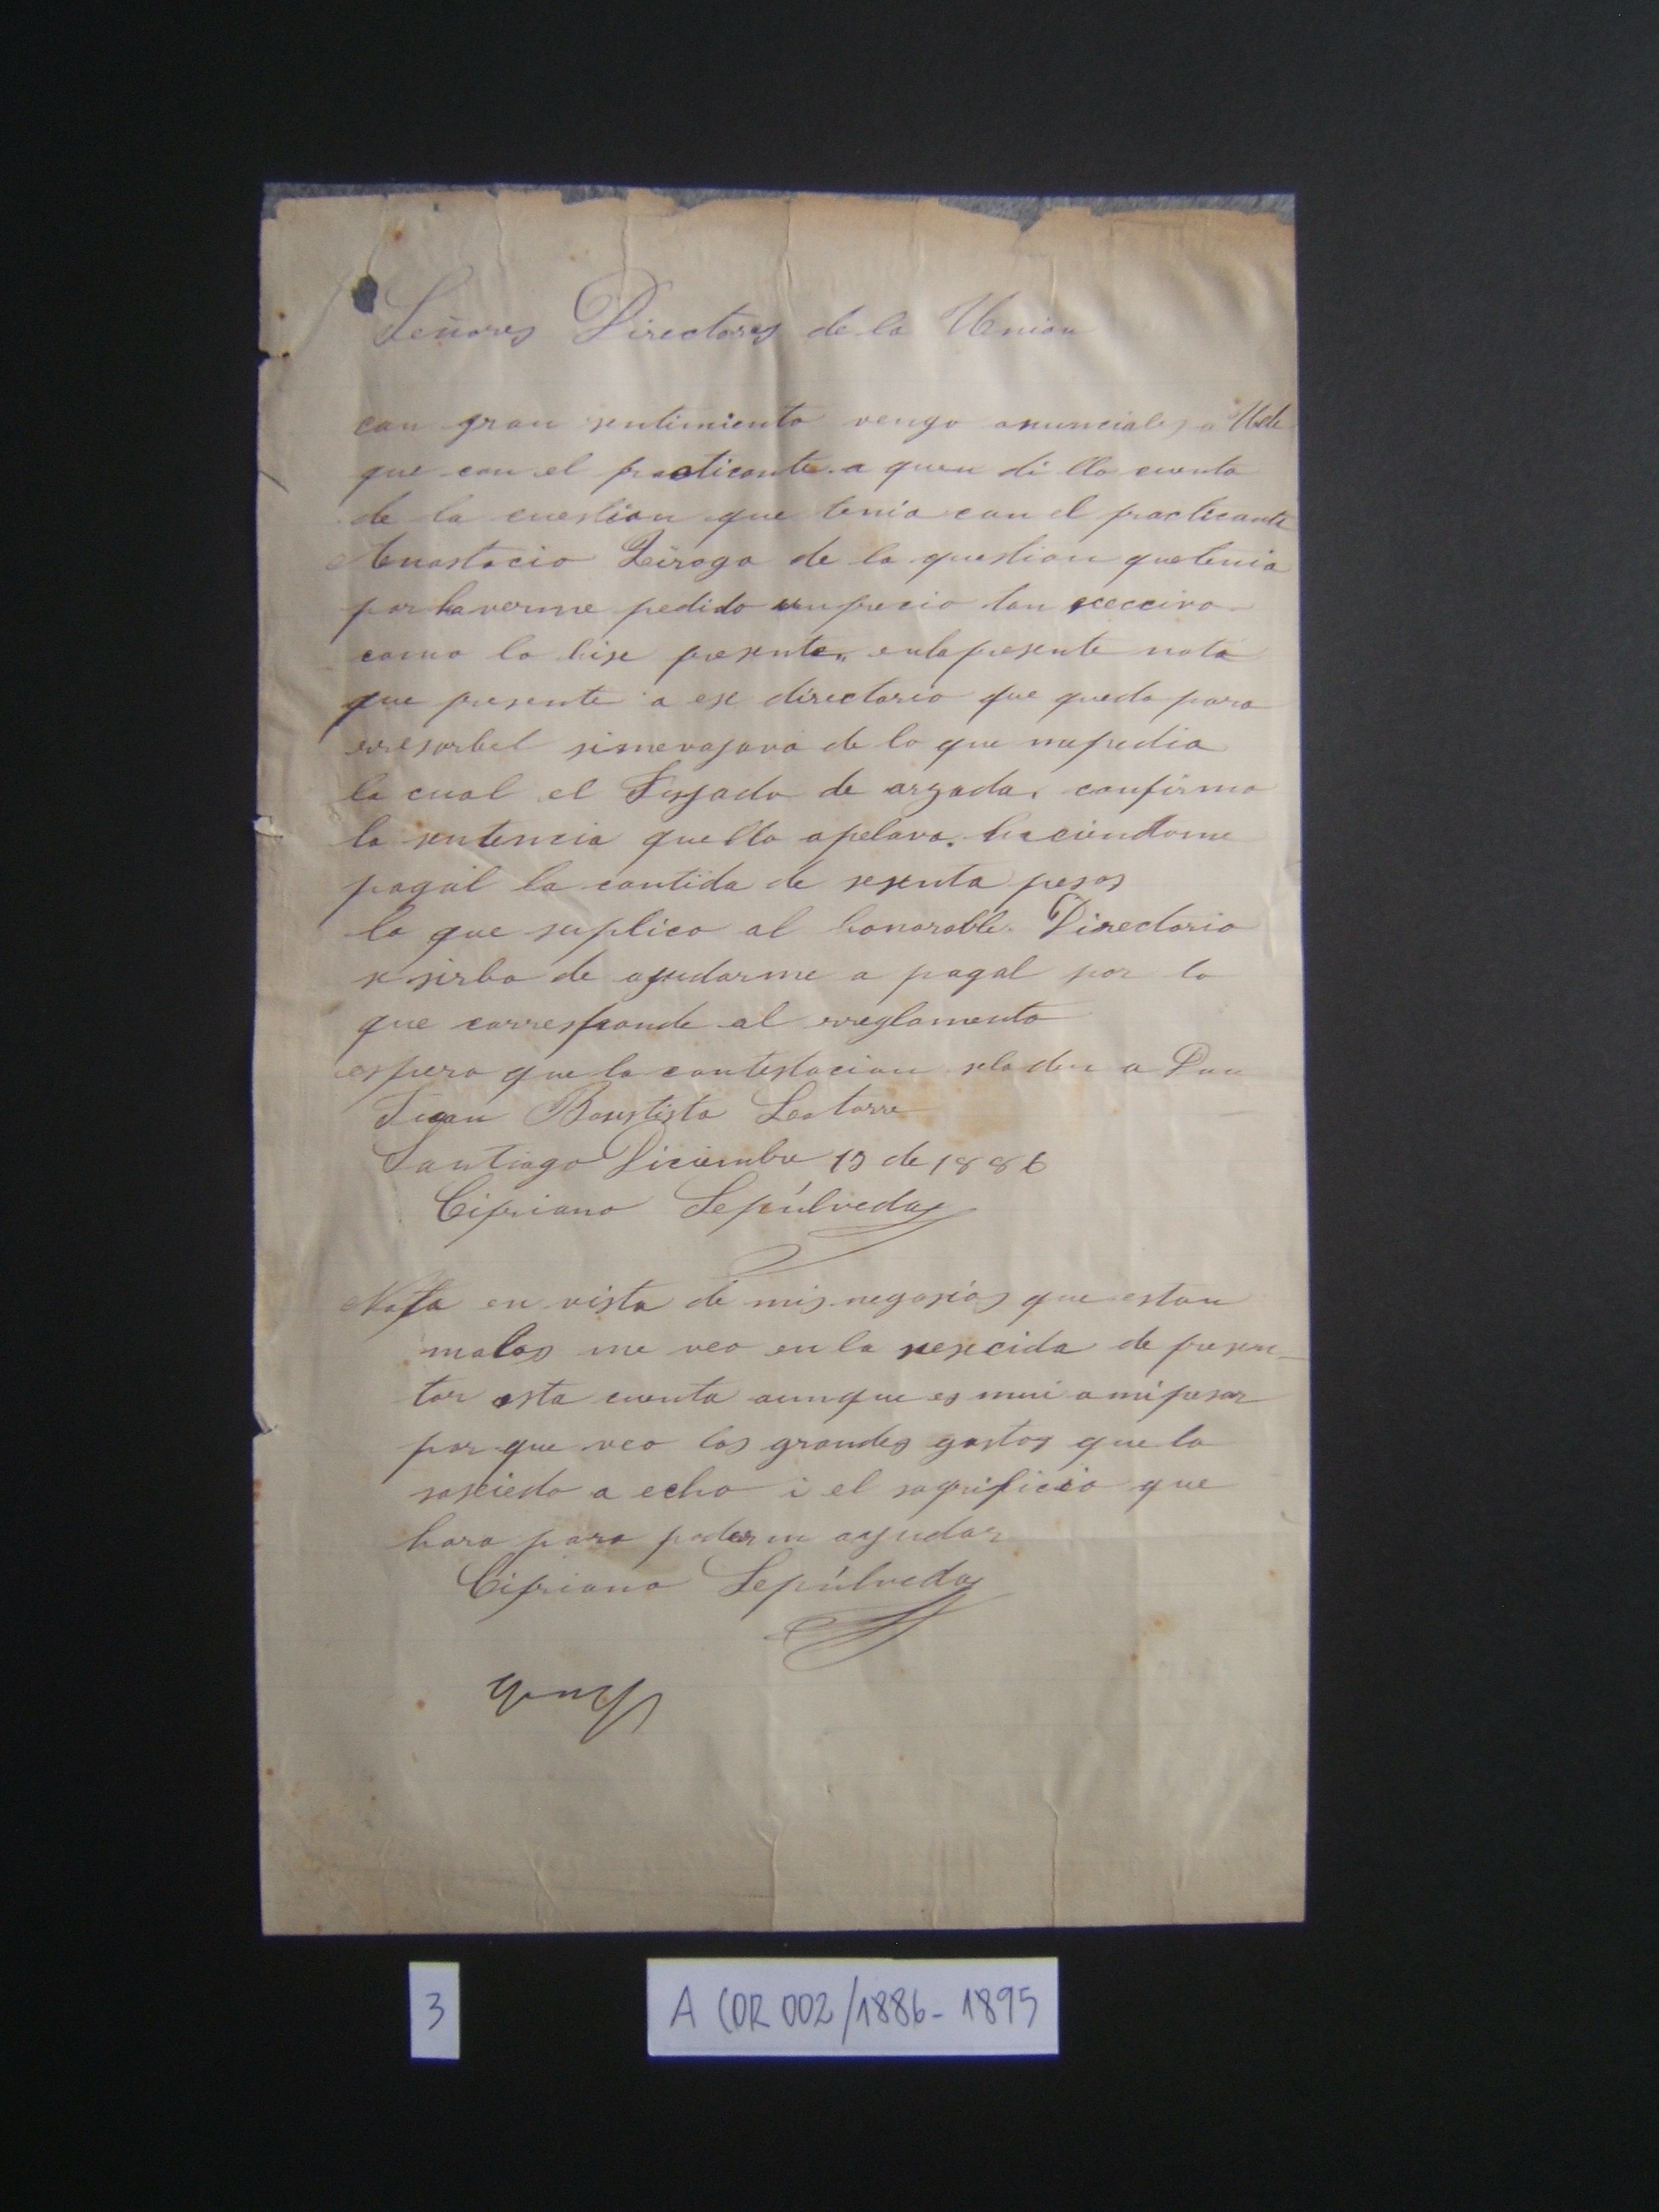 Señores Directores de la Union
con gran sentimiento vengo anunciales a Uds
que con el practicante a quien di llo cuenta
de la cuestion que tenia con el practicante
Anastacio Quiroga de la question que tenia
por haverme pedido un precio tan ecceciro
como lo hise presente, en la presente nota
que presente a ese directorio que quedo para
rresorbel si me rajava de lo que me pedia
la cual el Jusgado de arzada, confirmo
la sentencia que llo apelava, haciendome
pagal la contida de sesenta pesos
lo que suplico al honorable Directorio
se sirba de ayudarme a pagal por lo
que corresponde al rreglamento
espero que la contestacion se la den a Don
Juan Bautista Leatorre
Santiago Diciembre 13 de 1886
Cipriano Sepúlveda
Nota en vista de mis negosios que estan
malos me veo en la nesecida de presen-
tar esta cuenta aunque es mui a mi pesar
por que veo los grandes gastos que la
sosieda a echo i el sagrificio que
hara para poderm ayudar
Cipriano Sepúlveda
3
A COR 002/1886-1895